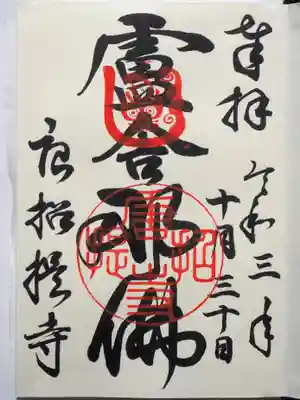 奉拝
令和三年
十月三十日
盧舎那佛
唐招提寺